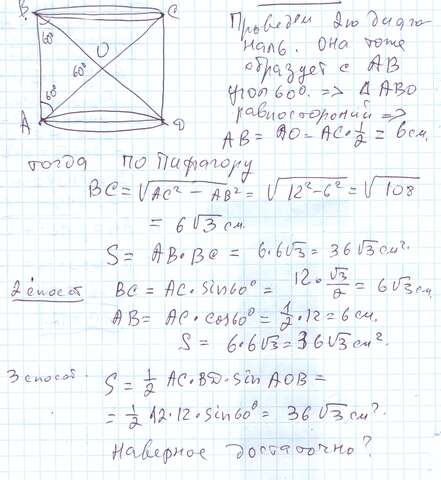 B C
60° O
60°
60°
A D
Проведем 2ю диаго
наль. Она тоже
образует с AB
угол 60°. => Δ ABO
равносторонний =>
AB = AO = AC · 1/2 = 6 см.
тогда по Пифагору
BC = √(AC² − AB²) = √(12² − 6²) = √108
= 6√3 см.
S = AB · BC = 6 · 6√3 = 36√3 см².
2 способ BC = AC · sin60° = 12 · √3/2 = 6√3 см
AB = AC · cos60° = 1/2 · 12 = 6 см.
S = 6 · 6√3 = 36√3 см².
3 способ. S = 1/2 AC · BD · sin AOB =
= 1/2 12 · 12 · sin60° = 36√3 см².
Наверное достаточно?